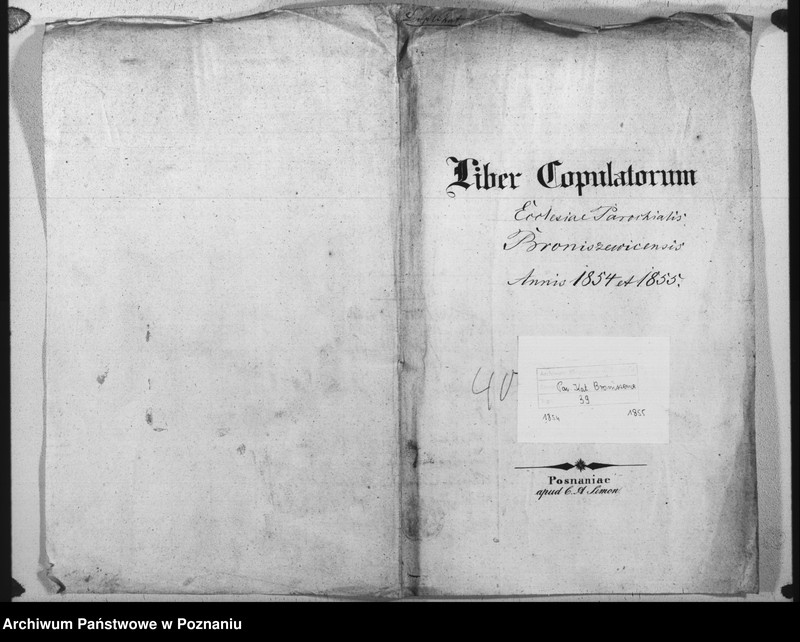 Duplikat
Liber Copulatorum
Ecclesiae Parochialis
Broniszewicensis
Annis 1854 et 1855.
40
Par. Kat
39
1854 1855
Posnaniae
apud C. A. Simon
Archiwum Państwowe w Poznaniu